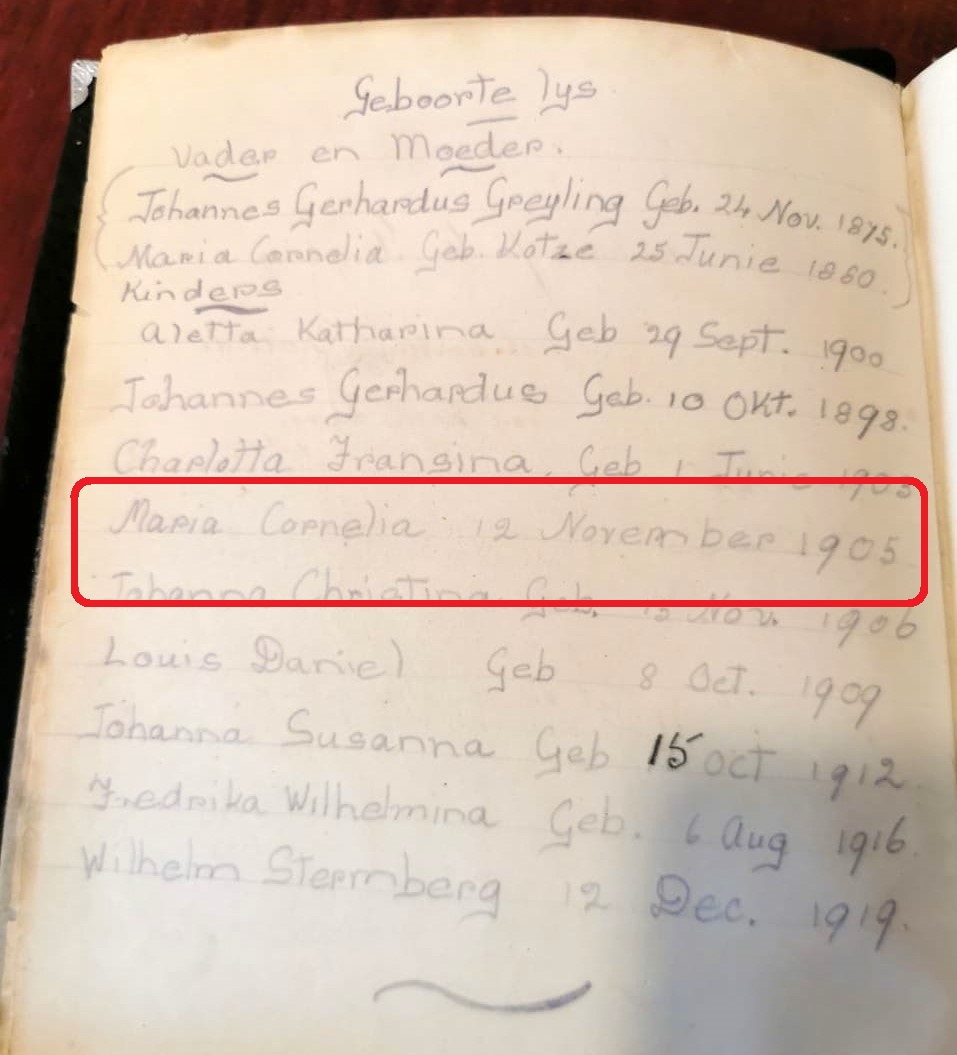 Geboorte lys
Vader en Moeder.
Johannes Gerhardus Greyling Geb. 24 Nov. 1875.
Maria Cornelia Geb. Kotze 25 Junie 1860.
Kinders
Aletta Katharina Geb 29 Sept. 1900
Johannes Gerhardus Geb. 10 Okt. 1898.
Charlotta Fransina. Geb 1 Junie 1903
Maria Cornelia 12 November 1905
Johanna Christina Geb. Nov. 1906
Louis Daniel Geb 8 Oct. 1909
Johanna Susanna Geb 15 Oct 1912
Fredrika Wilhelmina Geb. 6 Aug 1916.
Wilhelm Stermberg 12 Dec. 1919.